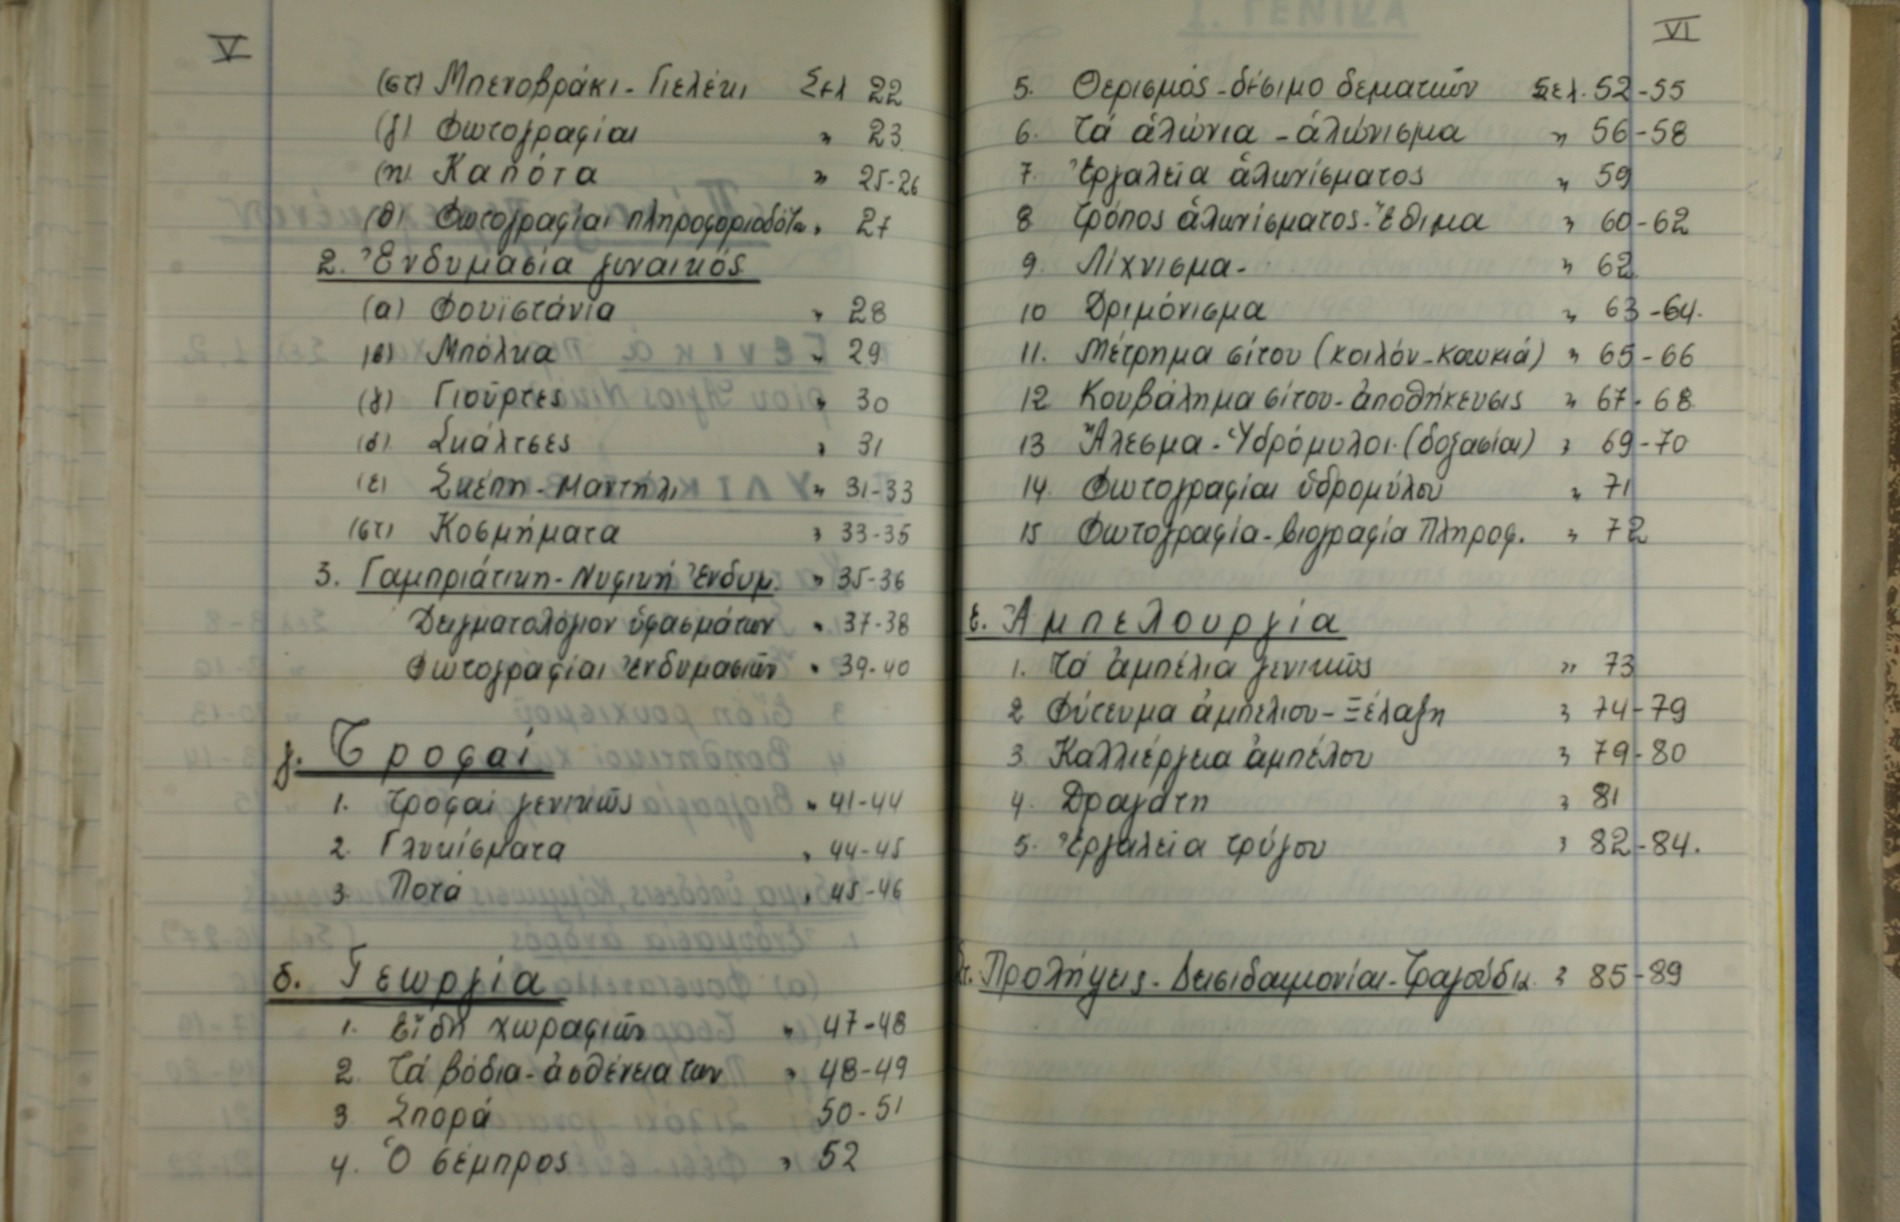 V
(στ) Μπενοβράκι - Γιελέκι Σελ 22
(ζ) Φωτογραφίαι " 23
(η) Καπότα " 25-26
(θ) Φωτογραφίαι πληροφοριοδότ. " 27
2. Ἐνδυμασία γυναικός
(α) Φουϊστάνια " 28
(β) Μπόλκα " 29
(γ) Γιοῦρτες " 30
(δ) Σκάλτσες " 31
(ε) Σκέπη - Μαντήλι " 31-33
(στ) Κοσμήματα " 33-35
3. Γαμπριάτικη - Νυφική Ἐνδυμ. " 35-36
Δειγματολόγιον ὑφασμάτων " 37-38
Φωτογραφίαι ἐνδυμασιῶν " 39-40
γ. Τροφαί
1. Τροφαί γενικῶς " 41-44
2. Γλυκίσματα " 44-45
3. Ποτά " 45-46
δ. Γεωργία
1. Εἴδη χωραφιῶν " 47-48
2. Τά βόδια - ἀσθένειαι των " 48-49
3. Σπορά 50-51
4. Ὁ σέμπρος " 52
VI
5. Θερισμός - δέσιμο δεματιῶν Σελ. 52-55
6. Τά ἁλώνια - ἁλώνισμα " 56-58
7. Ἐργαλεῖα ἁλωνίσματος " 59
8 Τρόπος ἁλωνίσματος - Ἔθιμα " 60-62
9. Λίχνισμα - " 62
10 Δριμόνισμα " 63-64.
11. Μέτρημα σίτου (κοιλόν - καυκιά) " 65-66
12 Κουβάλημα σίτου - ἀποθήκευσις " 67-68
13 Ἄλεσμα - Ὑδρόμυλοι. (δοξασίαι) " 69-70
14. Φωτογραφίαι ὑδρομύλου " 71
15 Φωτογραφία - βιογραφία Πληροφ. " 72
ε. Ἀμπελουργία
1. Τά ἀμπέλια γενικῶς " 73
2 Φύτευμα ἀμπελιου - Ξέλαξη " 74-79
3. Καλλιέργεια ἀμπέλου " 79-80
4. Δραγάτη " 81
5. Ἐργαλεῖα τρύγου " 82-84.
στ. Προλήψεις - Δεισιδαιμονίαι - Τραγούδια " 85-89